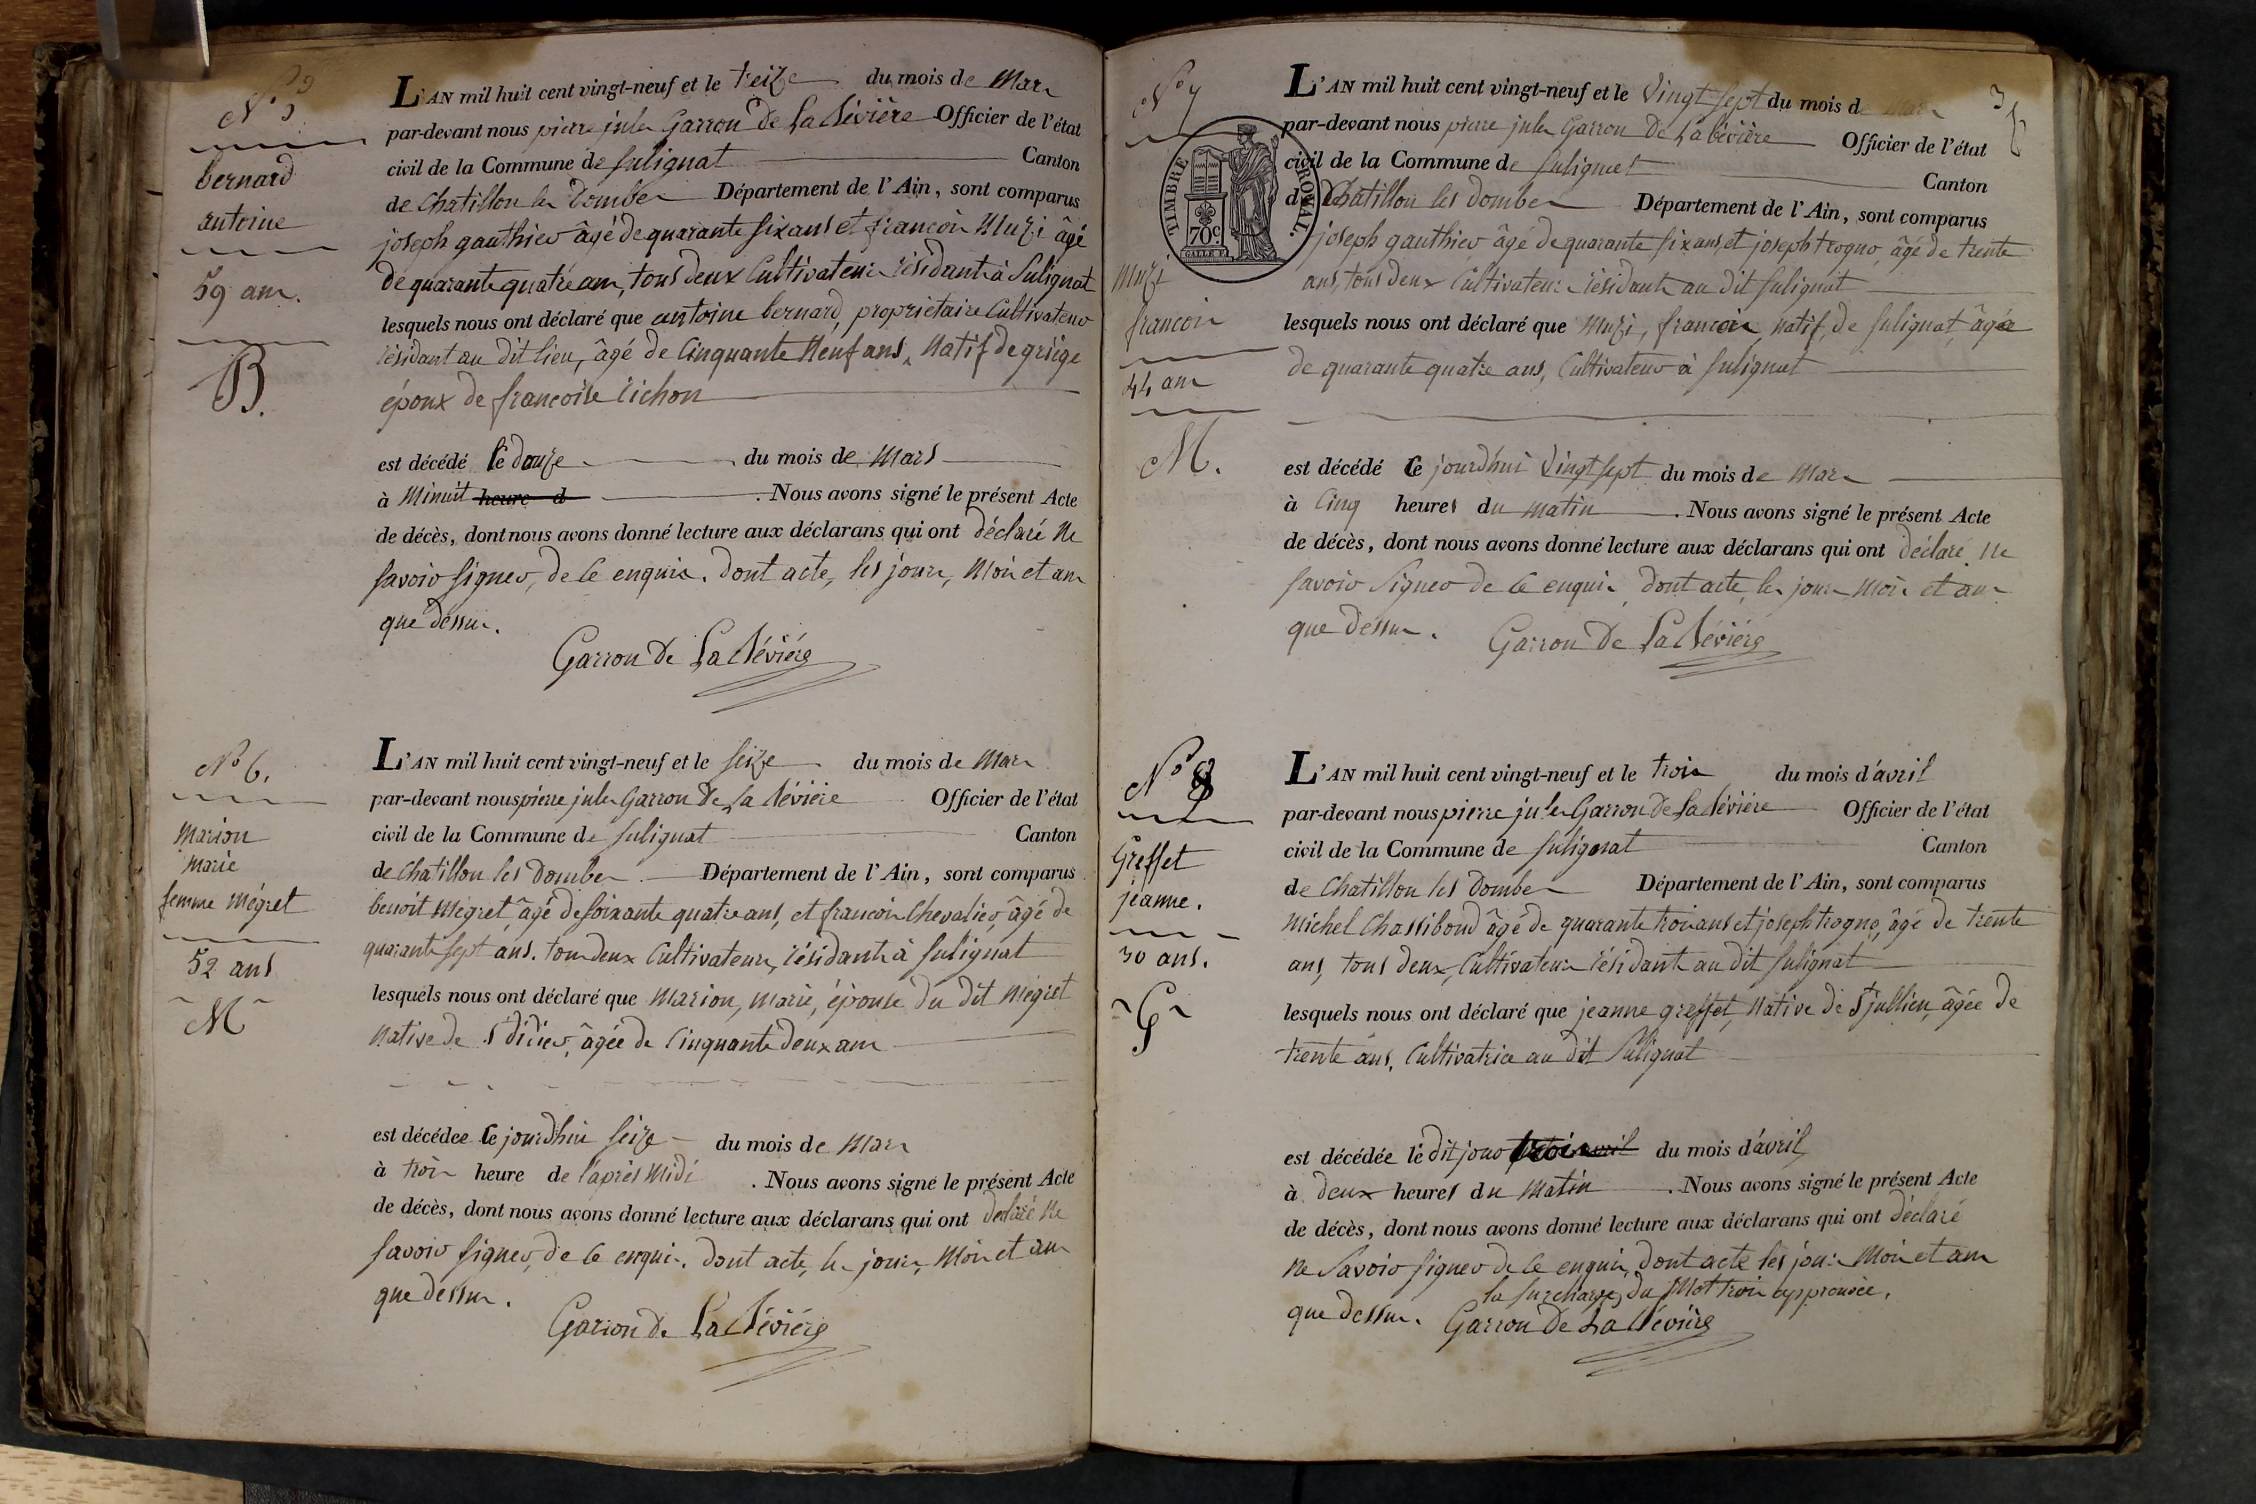 N° 5
bernard
antoine
59 ans.
B.
L'AN mil huit cent vingt-neuf et le treize du mois de Mars
par-devant nous pierre jules Garron De La Bévière Officier de l'état
civil de la Commune de Sulignat Canton
de Chatillon les Dombes Département de l'Ain, sont comparus
joseph gauthier âgé de quarante six ans et francois Muzi âgé
de quarante quatre ans, tous deux Cultivateurs résidants à Sulignat
lesquels nous ont déclaré que antoine bernard, propriétaire Cultivateur
résidant au dit lieu, âgé de Cinquante Neuf ans, Natif de griège
époux de francoise Cichon
est décédé le douze du mois de Mars
à Minuit heure d . Nous avons signé le présent Acte
de décès, dont nous avons donné lecture aux déclarans qui ont déclaré Ne
savoir signer, de ce enquis. Dont acte, les jours, Mois et an
que dessus.
Garron De La Bévière
N° 6.
Marion
Marie
femme Mégret
52 ans
M
L'AN mil huit cent vingt-neuf et le seize du mois de Mars
par-devant nous pierre jules Garron De La Bévière Officier de l'état
civil de la Commune de Sulignat Canton
de Chatillon les Dombes Département de l'Ain, sont comparus
benoit Mégret, âgé de soixante quatre ans, et francois Chevalier, âgé de
quarante sept ans. tous deux Cultivateurs, résidants à Sulignat
lesquels nous ont déclaré que Marion, Marie, épouse du dit Mégret
Native de St didier, âgée de Cinquante deux ans
est décédée Ce jourdhui seize du mois de Mars
à trois heure de l'après Midi . Nous avons signé le présent Acte
de décès, dont nous avons donné lecture aux déclarans qui ont déclaré Ne
savoir signer, de ce enquis. Dont acte, les jours, Mois et an
que dessus.
Garron De La Bévière
N° 7
Muzi
francois
44 ans
M.
TIMBRE ROYAL.
70c.
L'AN mil huit cent vingt-neuf et le Vingt sept du mois de Mars
par-devant nous pierre jules Garron De La Bévière Officier de l'état
civil de la Commune de Sulignat Canton
de Chatillon les Dombes Département de l'Ain, sont comparus
joseph gauthier âgé de quarante six ans, et joseph trogno, âgé de trente
ans, tous deux Cultivateurs résidants au dit Sulignat
lesquels nous ont déclaré que Muzi, francois, natif de Sulignat, âgé
de quarante quatre ans, Cultivateur à Sulignat
est décédé Ce jourdhui Vingt sept du mois de Mars
à Cinq heures du matin . Nous avons signé le présent Acte
de décès, dont nous avons donné lecture aux déclarans qui ont déclaré Ne
savoir signer de ce enquis, Dont acte, les jours Mois et an
que dessus.
Garron De La Bévière
N° 8
Greffet
jeanne.
30 ans.
G
L'AN mil huit cent vingt-neuf et le trois du mois d'avril
par-devant nous pierre jules Garron De La Bévière Officier de l'état
civil de la Commune de Sulignat Canton
de Chatillon les Dombes Département de l'Ain, sont comparus
Michel Chassiboud âgé de quarante trois ans et joseph trogno, âgé de trente
ans, tous deux, Cultivateurs résidant au dit Sulignat
lesquels nous ont déclaré que jeanne greffet, Native de St jullien, âgée de
trente ans, Cultivatrice au dit Sulignat
est décédée le dit jour trois avril du mois d'avril
à deux heures du Matin . Nous avons signé le présent Acte
de décès, dont nous avons donné lecture aux déclarans qui ont déclaré
Ne Savoir signer de ce enquis, Dont acte les jours Mois et an
la surcharge du Mot trois approuvée.
que dessus. Garron De La Bévière